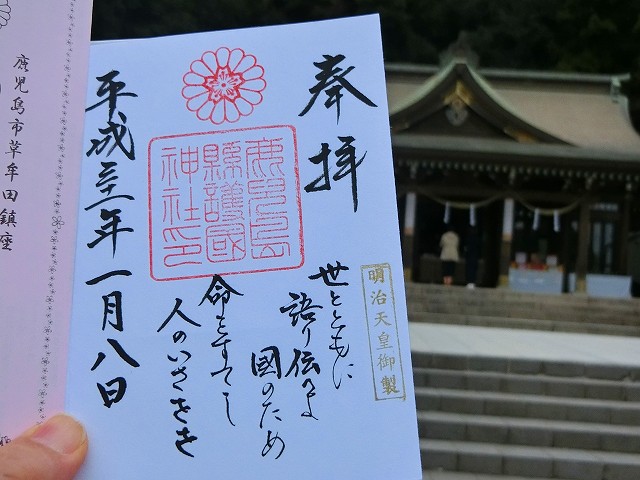 奉拝
明治天皇御製
世とともに
語り伝へよ
国のため
命をすてし
人のいさをを
鹿児島
縣護國
神社印
平成三十一年一月八日
鹿児島市草牟田鎮座